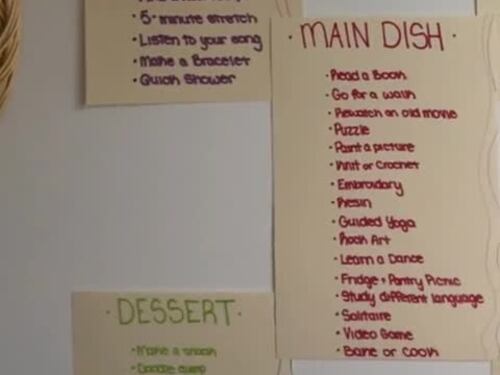 · 5-minute stretch
· Listen to your song
· Make a Bracelet
· Quick Shower
· MAIN DISH ·
· Read a Book
· Go for a walk
· Rewatch an old movie
· Puzzle
· Paint a picture
· Knit or Crochet
· Embroidary
· Resin
· Guided Yoga
· Rock Art
· Learn a Dance
· Fridge + Pantry Picnic
· Study different language
· Solitaire
· Video Game
· Bake or Cook
· DESSERT ·
· Make a snack